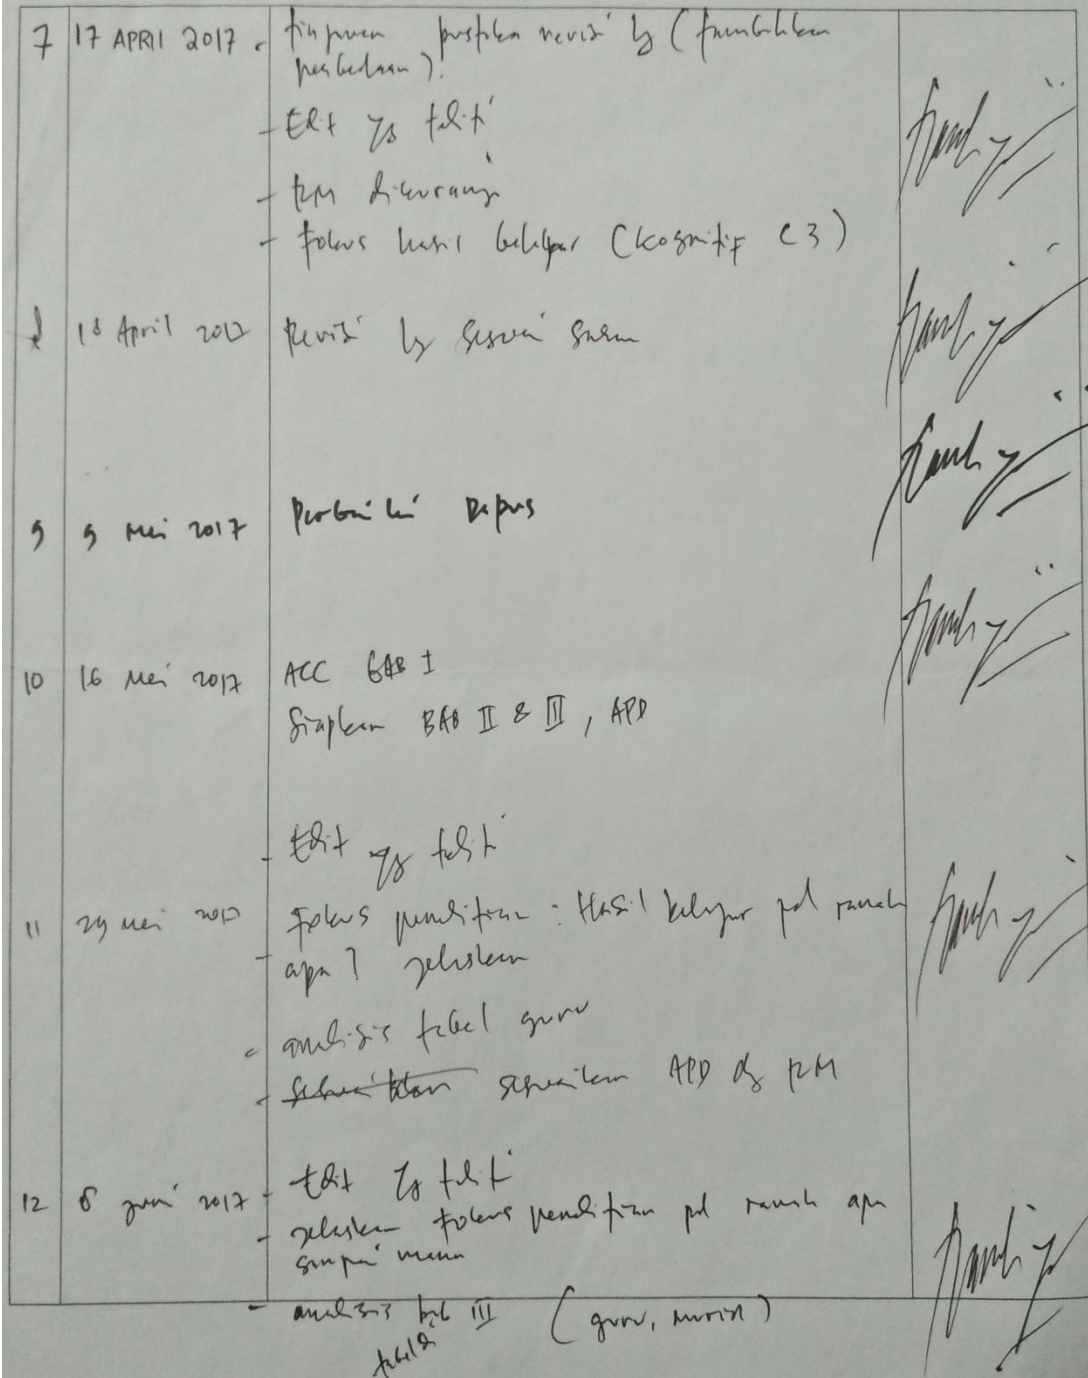 7 17 APRIL 2017 - tinjauan pustaka revisi lg (tambahkan
perbedaan).
- Edit yg teliti
- RM dikurangi
- fokus hasil belajar (kognitif C3)
18 April 2017 Revisi lg sesuai saran
9 9 Mei 2017 Perbaiki Dapus
10 16 Mei 2017 ACC BAB I
Siapkan BAB II & III, APD
- Edit yg teliti
11 29 Mei 2017 - Fokus penelitian : Hasil belajar pd ranah
apa? jelaskan
- analisis tabel guru
- sesuaikan sesuaikan APD dg RM
12 6 Juni 2017 - Edit yg teliti
- jelaskan fokus penelitian pd ranah apa
sampai mana
- analisis bab III (guru, murid)
tabel di